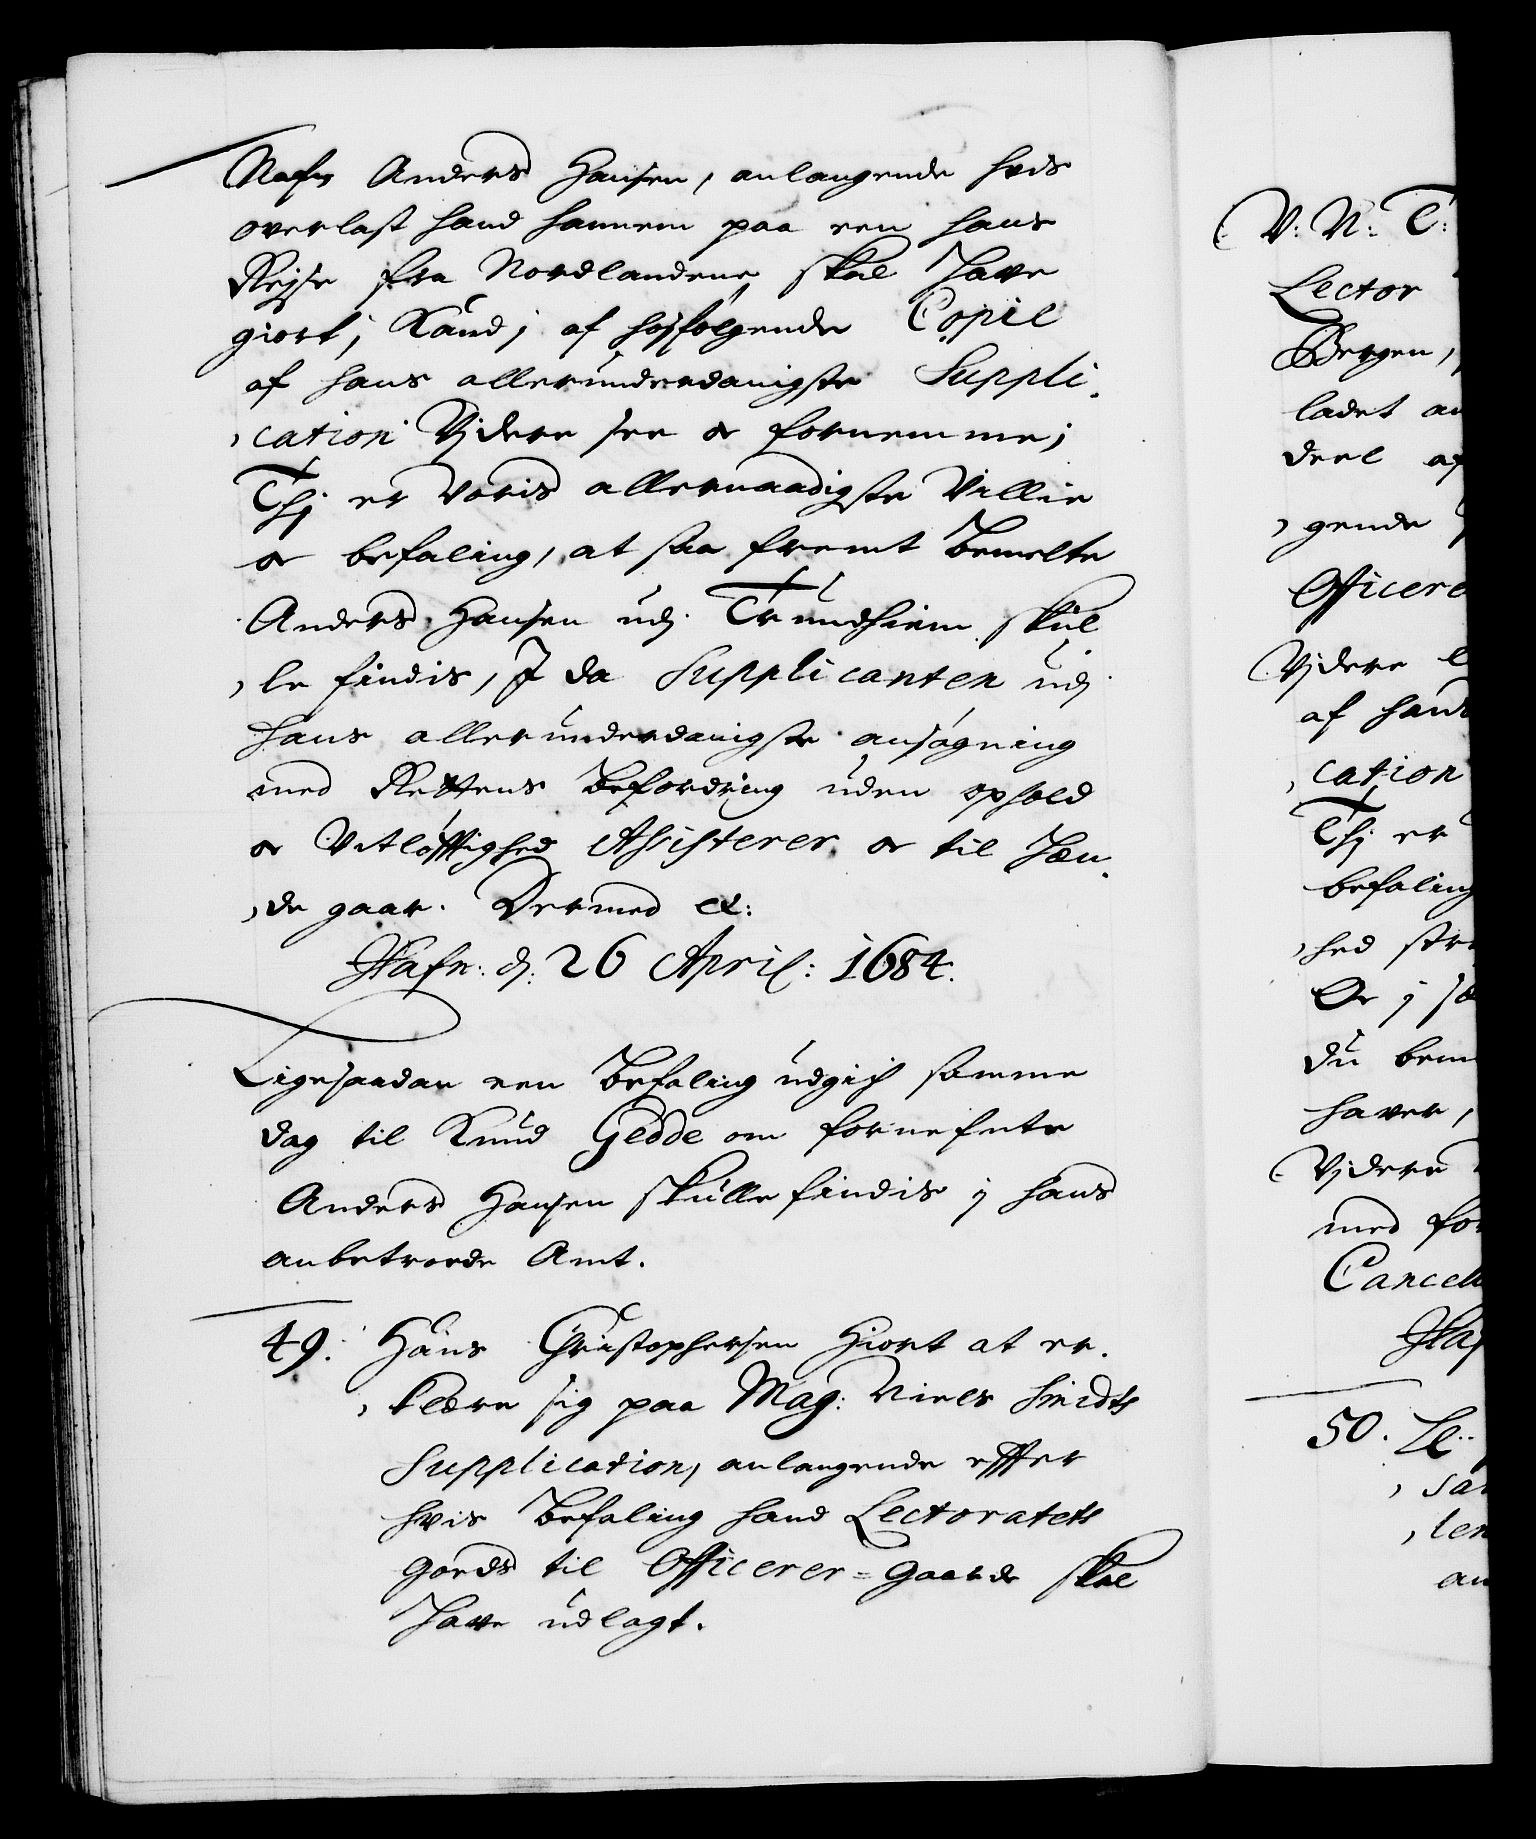 Nafn Anders Hansen, anlangende hvis
overlast hand hannem paa een hans
Rejse fra Nordlandene, skal have
giort; Kand j af hosfølgende Copie
af hans allerunderdanigste Suppli,
,cation Vjdere see oc fornemme;
Thj er Voris allernaadigste Villie
oc befaling, at saa fremt bemelte
Anders Hansen udj Trundhiem skul
,le findis, I da Supplicanten udj
hans allerunderdanigste ansøgning
med Rettens befordring uden ophold
oc Vitløfftighed Assisterer oc til Hæn,
,de gaar. Dermed etc:
Hafn: d: 26 April: 1684.
Ligesaadan een befaling udgich samme
dag til Knud Gedde om fornefnte
Anders Hansen skulle findis j hans
anbetroede Amt.
49. Hans Christophersen Hiort at er,
,klære sig paa Mag: Niels Smidts
Supplication, anlangende effter
hvis befaling hand Lectoratets
gords til Officerer=gaarde skal
have udlagt.
V: N: T:
Lector
Bergen,
ladet
deel af
,gende
Officere
Vjdere
af hand
,cation
Thj er
befaling
,hed
Oc j
du
haver,
Vjdere
med
Cancell
Haf
50.